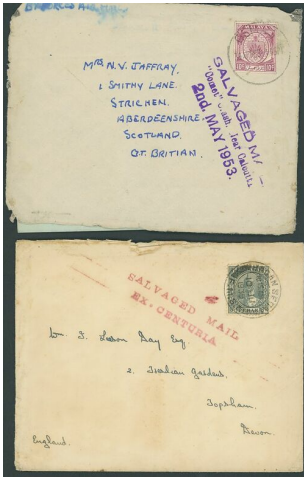 MALAYA
MRS N.V. JAFFRAY,
1 SMITHY LANE.
STRICHEN.
ABERDEENSHIRE.
SCOTLAND.
GT. BRITIAN.
SALVAGED MAIL
"Comet" Crash, near Calcutta
2nd. MAY 1953.
SALVAGED MAIL
EX. CENTURIA
Day Esq.
2, Italian Gardens.
Topsham,
Devon.
England.